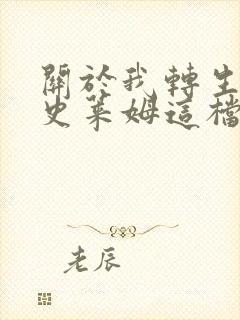 關於我轉生
史萊姆這檔
老辰